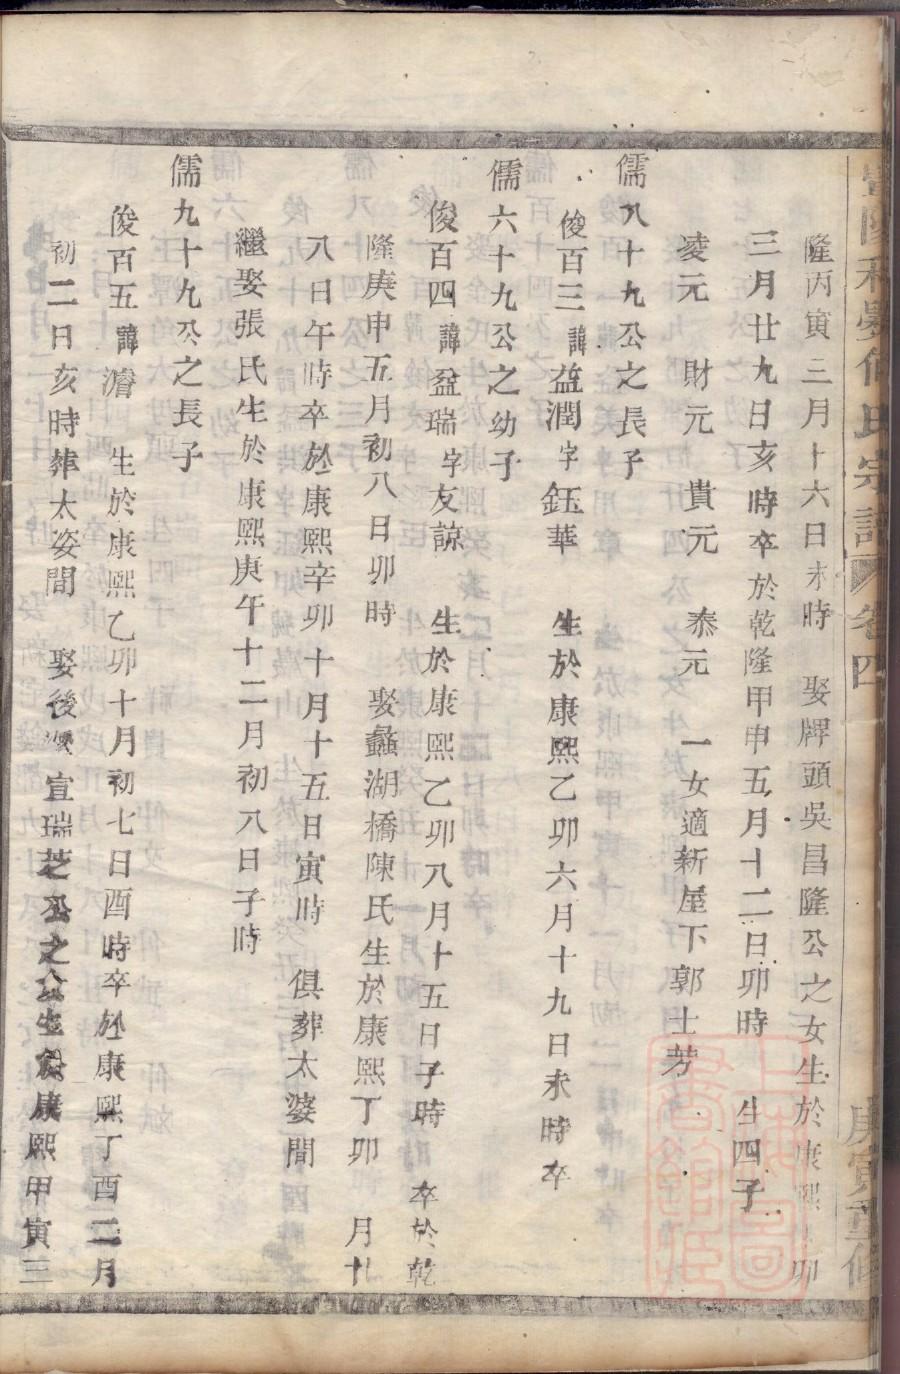 氏宗譜 卷四 庚寅重修
隆丙寅三月十六日未時 娶牌頭吳昌隆公之女生於康熙 卯
三月廿九日亥時卒於乾隆甲申五月十二日卯時 生四子
凌元 財元 貴元 泰元 一女適新屋下郭士芳
儒八十九公之長子
俊百三諱益潤字鈺華 生於康熙乙卯六月十九日未時卒
儒六十九公之幼子
俊百四諱益瑞字友諒 生於康熙乙卯八月十五日子時 卒於乾
隆庚申五月初八日卯時 娶蠡湖橋陳氏生於康熙丁卯 月十
八日午時卒於康熙辛卯十月十五日寅時 俱葬太婆間
繼娶張氏生於康熙庚午十二月初八日子時
儒九十九公之長子
俊百五諱濬 生於康熙乙卯十月初七日酉時卒於康熙丁酉二月
初二日亥時葬太姿間 娶後 宣瑞芝公之女生於康熙甲寅三